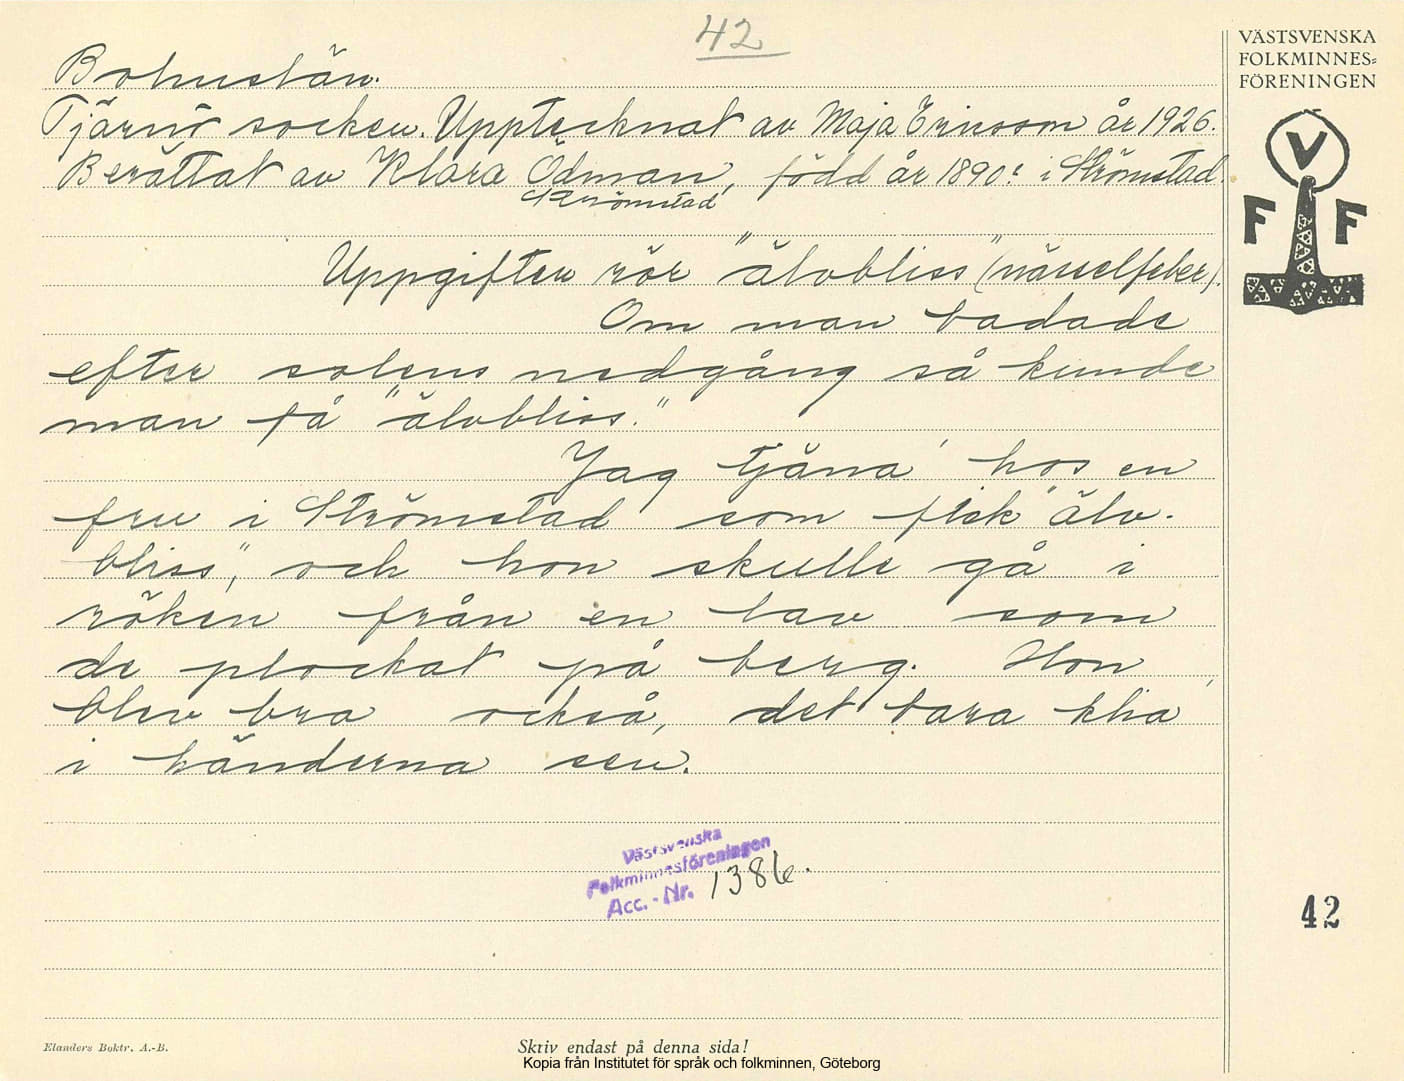 42
VÄSTSVENSKA
FOLKMINNES=
FÖRENINGEN
V
F F
Bohuslän.
Tjärnö socken. Upptecknat av Maja Ericsson år 1926.
Berättat av Klara Ödman, född år 1890? i Strömstad.
Strömstad
Uppgiften rör "älvbliss" (nässelfeber).
Om man badade
efter solens nedgång så kunde
man få "älvbliss."
Jag tjäna' hos en
fru i Strömstad som fick "älv-
bliss", och hon skulle gå i
röken från en lav som
de plockat på berg. Hon
blev bra också, det bara klia
i händerna sen.
Västsvenska
Folkminnesföreningen
Acc. - Nr. 1386.
42
Elanders Boktr. A.-B.
Skriv endast på denna sida!
Kopia från Institutet för språk och folkminnen, Göteborg